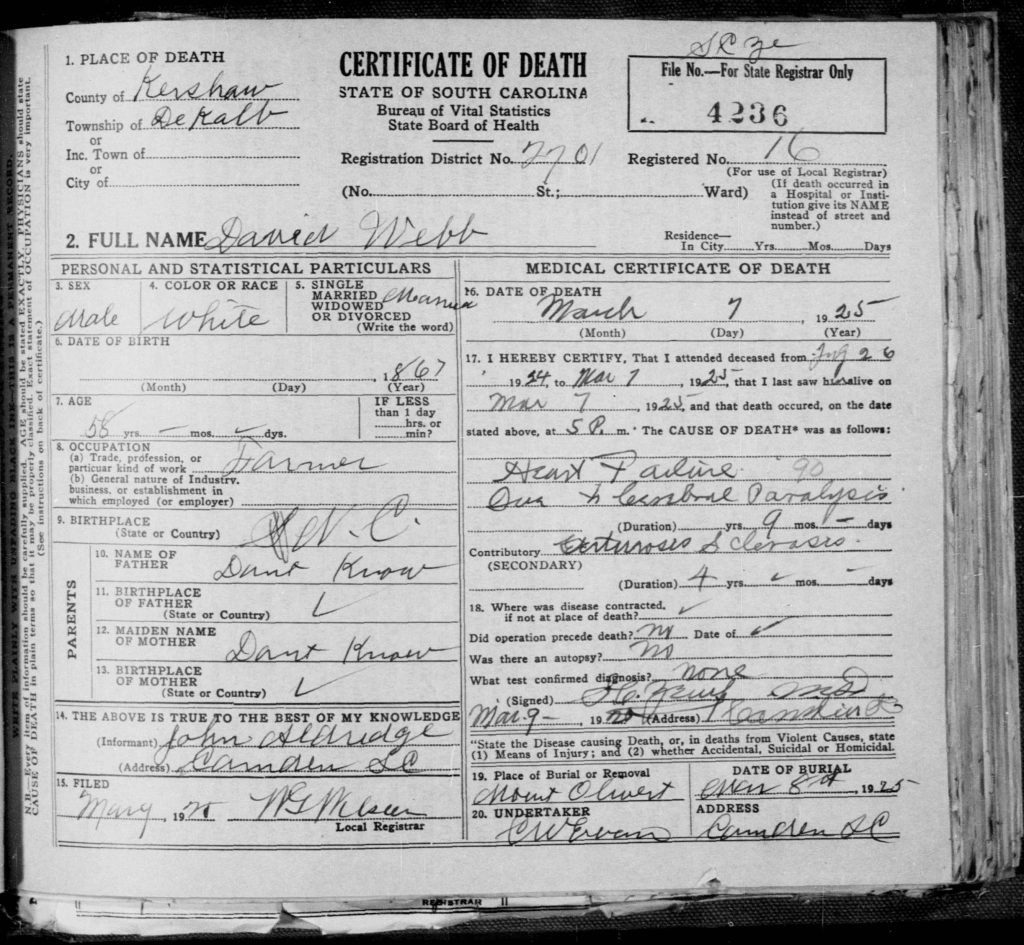 1. PLACE OF DEATH
County of Kershaw
Township of DeKalb
or
Inc. Town of
or
City of
CERTIFICATE OF DEATH
STATE OF SOUTH CAROLINA
Bureau of Vital Statistics
State Board of Health
Registration District No. 2701
(No. St.; Ward)
File No.—For State Registrar Only
4236
Registered No. 16
(For use of Local Registrar)
(If death occurred in
a Hospital or Insti-
tution give its NAME
instead of street and
number.)
Residence—
In City Yrs. Mos. Days
2. FULL NAME David Webb
PERSONAL AND STATISTICAL PARTICULARS
3. SEX
Male
4. COLOR OR RACE
White
5. SINGLE
MARRIED
WIDOWED
OR DIVORCED
(Write the word)
Married
6. DATE OF BIRTH
1867
(Month) (Day) (Year)
7. AGE
58 yrs. — mos. dys.
IF LESS
than 1 day
hrs. or
min?
8. OCCUPATION
(a) Trade, profession, or
particuar kind of work Farmer
(b) General nature of Industry.
business, or establishment in
which employed (or employer)
9. BIRTHPLACE
(State or Country) N. C.
PARENTS
10. NAME OF
FATHER Dont Know
11. BIRTHPLACE
OF FATHER
(State or Country) ✓
12. MAIDEN NAME
OF MOTHER Dont Know
13. BIRTHPLACE
OF MOTHER
(State or Country) ✓
14. THE ABOVE IS TRUE TO THE BEST OF MY KNOWLEDGE
(Informant) John Aldredge
(Address) Camden SC
15. FILED
192
Local Registrar
MEDICAL CERTIFICATE OF DEATH
16. DATE OF DEATH
March 7 1925
(Month) (Day) (Year)
17. I HEREBY CERTIFY, That I attended deceased from 26
1924, to Mar 7, 1925, that I last saw him alive on
Mar 7, 1925, and that death occured, on the date
stated above, at 5 P. m. The CAUSE OF DEATH* was as follows:
Heart Failure 90
Due to Cerebral Paralysis
(Duration) yrs 9 mos — days
Contributory Sclerosis.
(SECONDARY)
(Duration) 4 yrs ✓ mos — days
18. Where was disease contracted,
if not at place of death? ✓
Did operation precede death? no Date of ✓
Was there an autopsy? No
What test confirmed diagnosis? none
(Signed) MD
Mar. 9— 19 (Address)
*State the Disease causing Death, or, in deaths from Violent Causes, state
(1) Means of Injury; and (2) whether Accidental, Suicidal or Homicidal.
19. Place of Burial or Removal
Mount Olivert
DATE OF BURIAL
Mar 8th, 1925
20. UNDERTAKER
C W Evans
ADDRESS
Camden SC
WRITE PLAINLY WITH UNFADING BLACK INK—THIS IS A PERMANENT RECORD.
N.B.—Every item of information should be carefully supplied. AGE should be stated EXACTLY. PHYSICIANS should state
CAUSE OF DEATH in plain terms so that it may be properly classified. Exact statement of OCCUPATION is very important.
(See instructions on back of certificate.)
REGISTRAR